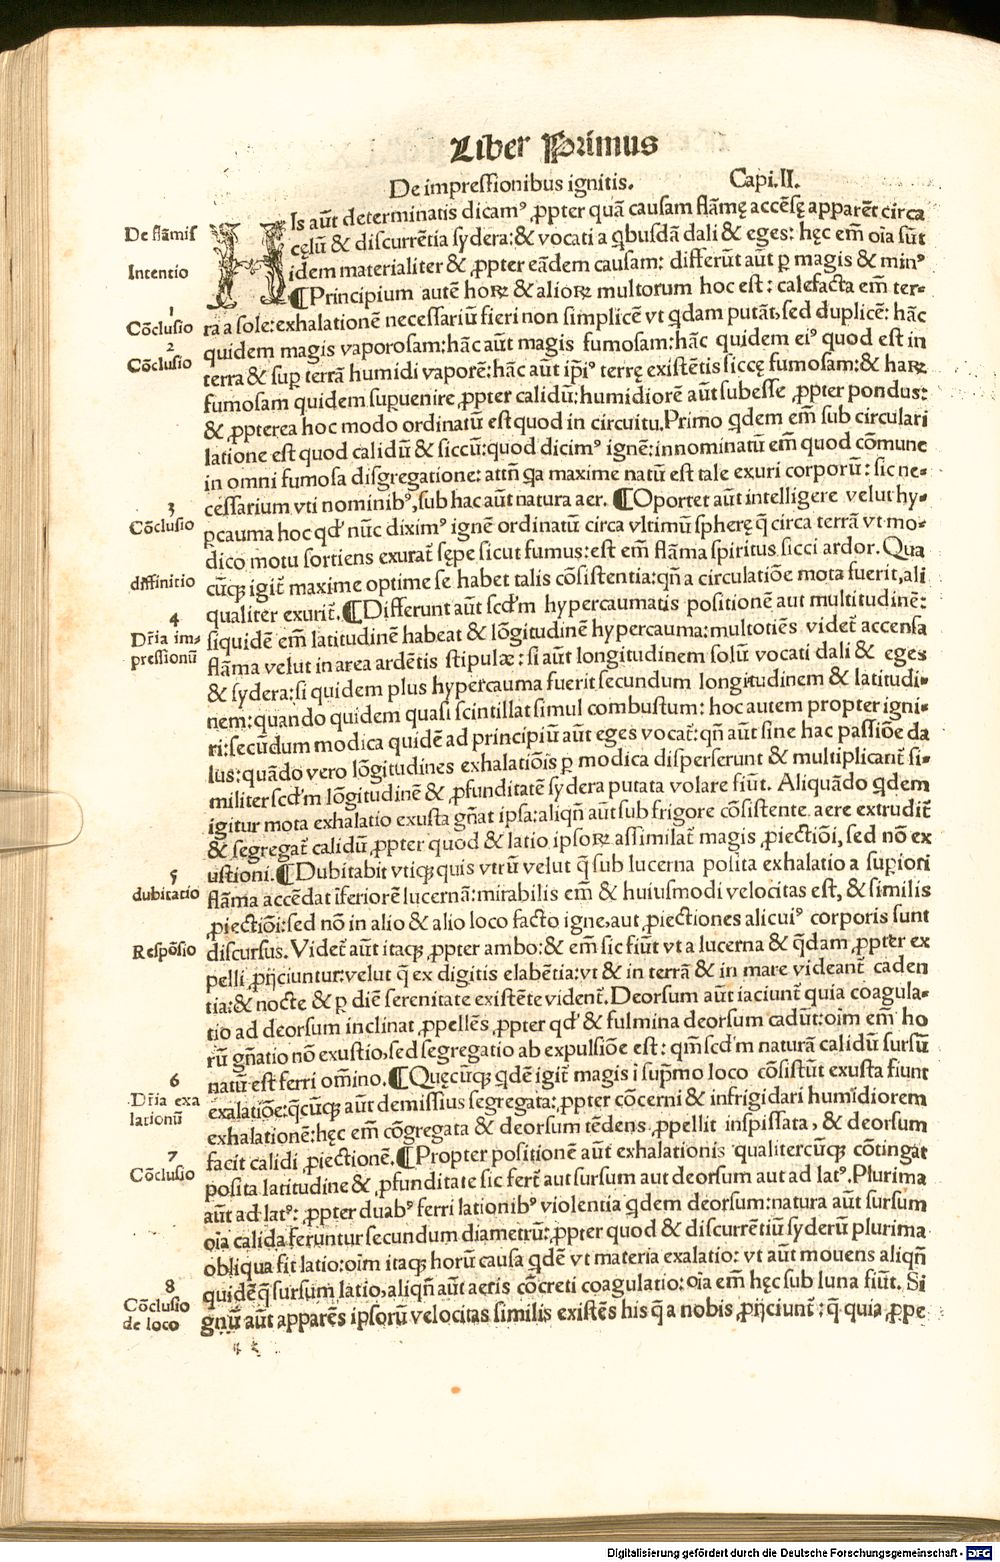 Liber Primus
De impressionibus ignitis. Capi.II.
De flāmis
Intentio
HIs aūt determinatis dicamꝰ ꝓpter quā causam flāmę accēsę apparēt circa
cęlū & discurrētia sydera: & vocati a qbusdā dali & eges: hęc em̄ oīa sūt
idem materialiter & ꝓpter eādem causam: differūt aūt ꝑ magis & minꝰ
¶Principium autē horꝝ & aliorꝝ multorum hoc est: calefacta em̄ ter-
1
Cōclusio
ra a sole: exhalationē necessariū fieri non simplicē vt qdam putāt, sed duplicē: hāc
2
Cōclusio
quidem magis vaporosam: hāc aūt magis fumosam: hāc quidem eiꝰ quod est in
terra & suꝑ terrā humidi vaporē: hāc aūt ip̄iꝰ terrę existētis siccę fumosam: & harꝝ
fumosam quidem suꝑuenire ꝓpter calidū: humidiorē aūt subesse ꝓpter pondus:
& ꝓpterea hoc modo ordinatū est quod in circuitu. Primo qdem em̄ sub circulari
latione est quod calidū & siccū: quod dicimꝰ ignē: innominatū em̄ quod cōmune
in omni fumosa disgregatione: attn̄ qa maxime natū est tale exuri corporū: sic ne-
cessarium vti nominibꝰ, sub hac aūt natura aer. ¶Oportet aūt intelligere velut hy-
3
Cōclusio
ꝑcauma hoc qd' nūc diximꝰ ignē ordinatū circa vltimū spherę q̄ circa terrā vt mo-
dico motu sortiens exurat̄ sępe sicut fumus: est em̄ flāma spiritus sicci ardor. Qua
diffinitio
cūqꝫ igit̄ maxime optime se habet talis cōsistentia: qn̄ a circulatiōe mota fuerit, ali
qualiter exurit̄. ¶Differunt aūt scd'm hypercaumatis positionē aut multitudinē:
4
Dr̄ia im-
pressionū
siquidē em̄ latitudinē habeat & lōgitudinē hypercauma: multotiēs videt̄ accensa
flāma velut in area ardētis stipulæ: si aūt longitudinem solū vocati dali & eges
& sydera: si quidem plus hypercauma fuerit secundum longitudinem & latitudi-
nem: quando quidem quasi scintillat simul combustum: hoc autem propter igni-
ri: secūdum modica quidē ad principiū aūt eges vocat̄: qn̄ aūt sine hac passiōe da
lus: quādo vero lōgitudines exhalatiōis ꝑ modica disperserunt & multiplicant̄ si-
militer scd'm lōgitudinē & ꝓfunditatē sydera putata volare fiūt. Aliquādo qdem
igitur mota exhalatio exusta gn̄at ipsa: aliqn̄ aūt sub frigore cōsistente aere extrudit̄
& segregat̄ calidū, ꝓpter quod & latio ipsorꝝ assimilat̄ magis ꝓiectiōi, sed nō ex
ustioni. ¶Dubitabit vtiqꝫ quis vtrū velut q̄ sub lucerna posita exhalatio a suꝑiori
5
dubitatio
flāma accēdat īferiorē lucernā: mirabilis em̄ & huiusmodi velocitas est, & similis
ꝓiectiōi: sed nō in alio & alio loco facto igne, aut ꝓiectiones alicuiꝰ corporis sunt
Respōsio
discursus. Videt̄ aūt itaqꝫ ꝓpter ambo: & em̄ sic fiūt vt a lucerna & q̄dam ꝓpter ex
pelli ꝓijciuntur: velut q̄ ex digitis elabētia: vt & in terrā & in mare videant̄ caden
tia: & nocte & ꝑ diē serenitate existēte vident̄. Deorsum aūt iaciunt̄ quia coagula-
tio ad deorsum inclinat ꝓpellēs ꝓpter qd' & fulmina deorsum cadūt: oīm em̄ ho
rū gn̄atio nō exustio, sed segregatio ab expulsiōe est: qm̄ scd'm naturā calidū sursū
natū est ferri om̄ino. ¶Quęcūqꝫ qdē igit̄ magis i suꝑmo loco cōsistūt exusta fiunt
6
Dr̄ia exa
lationū
exalatiōe: q̄cūqꝫ aūt demissius segregata: ꝓpter cōcerni & infrigidari humidiorem
exhalationē: hęc em̄ cōgregata & deorsum tēdens ꝓpellit inspissata, & deorsum
facit calidi ꝓiectionē. ¶Propter positionē aūt exhalationis qualitercūqꝫ cōtingat
7
Cōclusio
posita latitudine & ꝓfunditate sic fert̄ aut sursum aut deorsum aut ad latꝰ. Plurima
aūt ad latꝰ: ꝓpter duabꝰ ferri lationibꝰ violentia qdem deorsum: natura aūt sursum
oīa calida feruntur secundum diametrū: ꝓpter quod & discurrētiū syderū plurima
obliqua fit latio: oīm itaqꝫ horū causa qdē vt materia exalatio: vt aūt mouens aliqn̄
quidē q̄ sursum latio, aliqn̄ aūt aeris cōcreti coagulatio: oīa em̄ hęc sub luna fiūt. Si
8
Cōclusio
de loco
gnū aūt apparēs ipsorū velocitas similis existēs his q̄ a nobis ꝓijciunt̄: q̄ quia ꝓpe
Digitalisierung gefördert durch die Deutsche Forschungsgemeinschaft - DFG